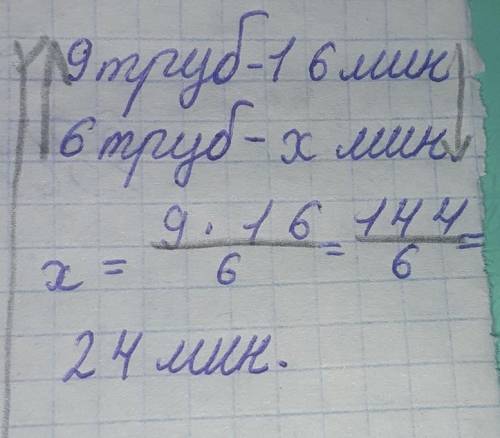 9 труб - 16 мин
6 труб - x мин
x = 9 · 16 / 6 = 144 / 6 =
24 мин.